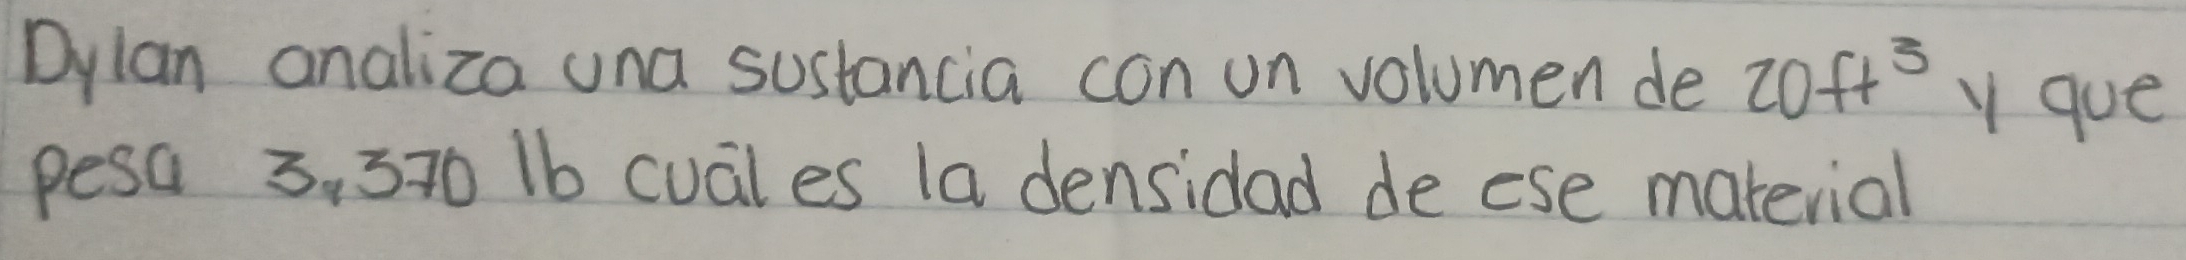 Dylan analiza una sustancia con un volumen de 20ft³ y que
pesa 3,370 lb cuál es la densidad de ese material